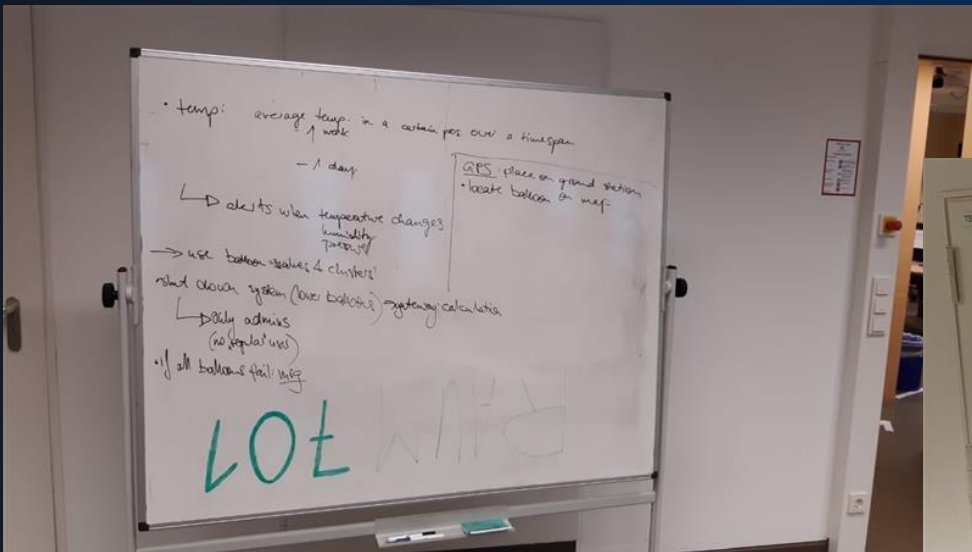 • temp: average temp. in a certain pos over a timespan
- 1 week
- 1 day
alerts when temperature changes
humidity
pressure
→ use balloon values & clusters
• shut down system (lower balloons) → gateway: calculation
only admins
(no regular users)
• if all balloons fail: msg
GPS: place on ground station
• locate balloon on map